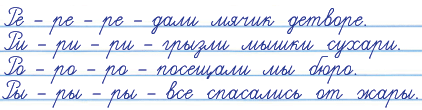 Ре – ре – ре – дали мячик детворе.
Ри – ри – ри – грызли мышки сухари.
Ро – ро – ро – посещали мы бюро.
Ры – ры – ры – все спасались от жары.